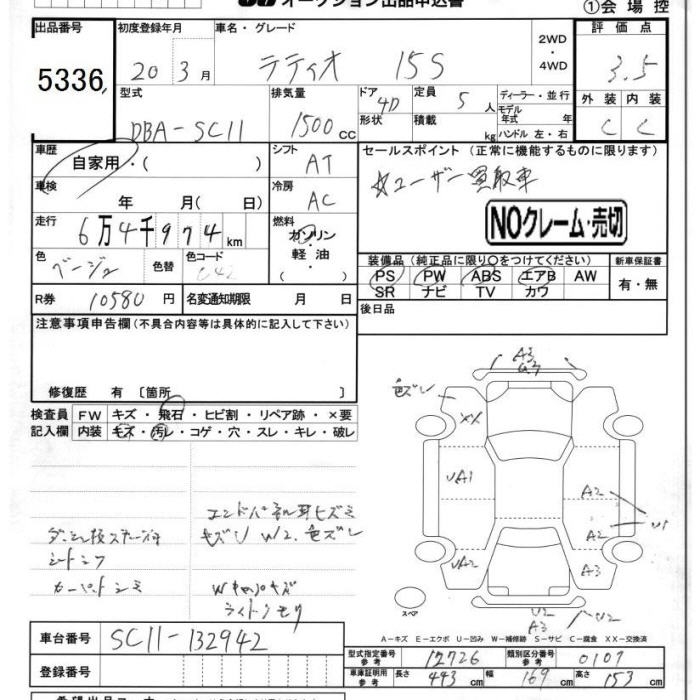 オークション出品申込書
①会場控
出品番号
5336
初度登録年月
20 3月
車名・グレード
ラティオ 15S
2WD
・
4WD
評価点
3.5
外装 内装
C C
型式
DBA-SC11
排気量
1500cc
ドア
4D
形状
定員
5人
積載
kg
ディーラー・並行
モデル
年式 年
ハンドル 左・右
車歴
自家用・( )
シフト
AT
セールスポイント(正常に機能するものに限ります)
☆ユーザー買取車
車検
年 月( 日)
冷房
AC
NOクレーム・売切
走行
6万4千974km
燃料
ガソリン
・
軽油・
( )
色
ベージュ
色替
色コード
装備品(純正品に限り○をつけてください)
PS PW ABS エアB AW
SR ナビ TV カワ
新車保証書
有・無
R券
10580円
名変通知期限 月 日
後日品
注意事項申告欄(不具合内容等は具体的に記入して下さい)
修復歴 有〔箇所 〕
検査員
記入欄
FW キズ・飛石・ヒビ割・リペア跡・×要
内装 キズ・汚レ・コゲ・穴・スレ・キレ・破レ
シートシミ
カーペットシミ
色ズレ W2、色ズレ
ライトクモリ
A3
色ズレ
XX
UA1
A2
U1
A2
UA2
A3
スペア
U2
A3
U2
A-キズ E-エクボ U-凹み W-補修跡 S-サビ C-腐食 XX-交換済
車台番号
SC11-132942
登録番号
型式指定番号
参考
12726
類別区分番号
参考
0107
車庫証明用
参考
長さ 443cm 幅 169cm 高さ 153cm